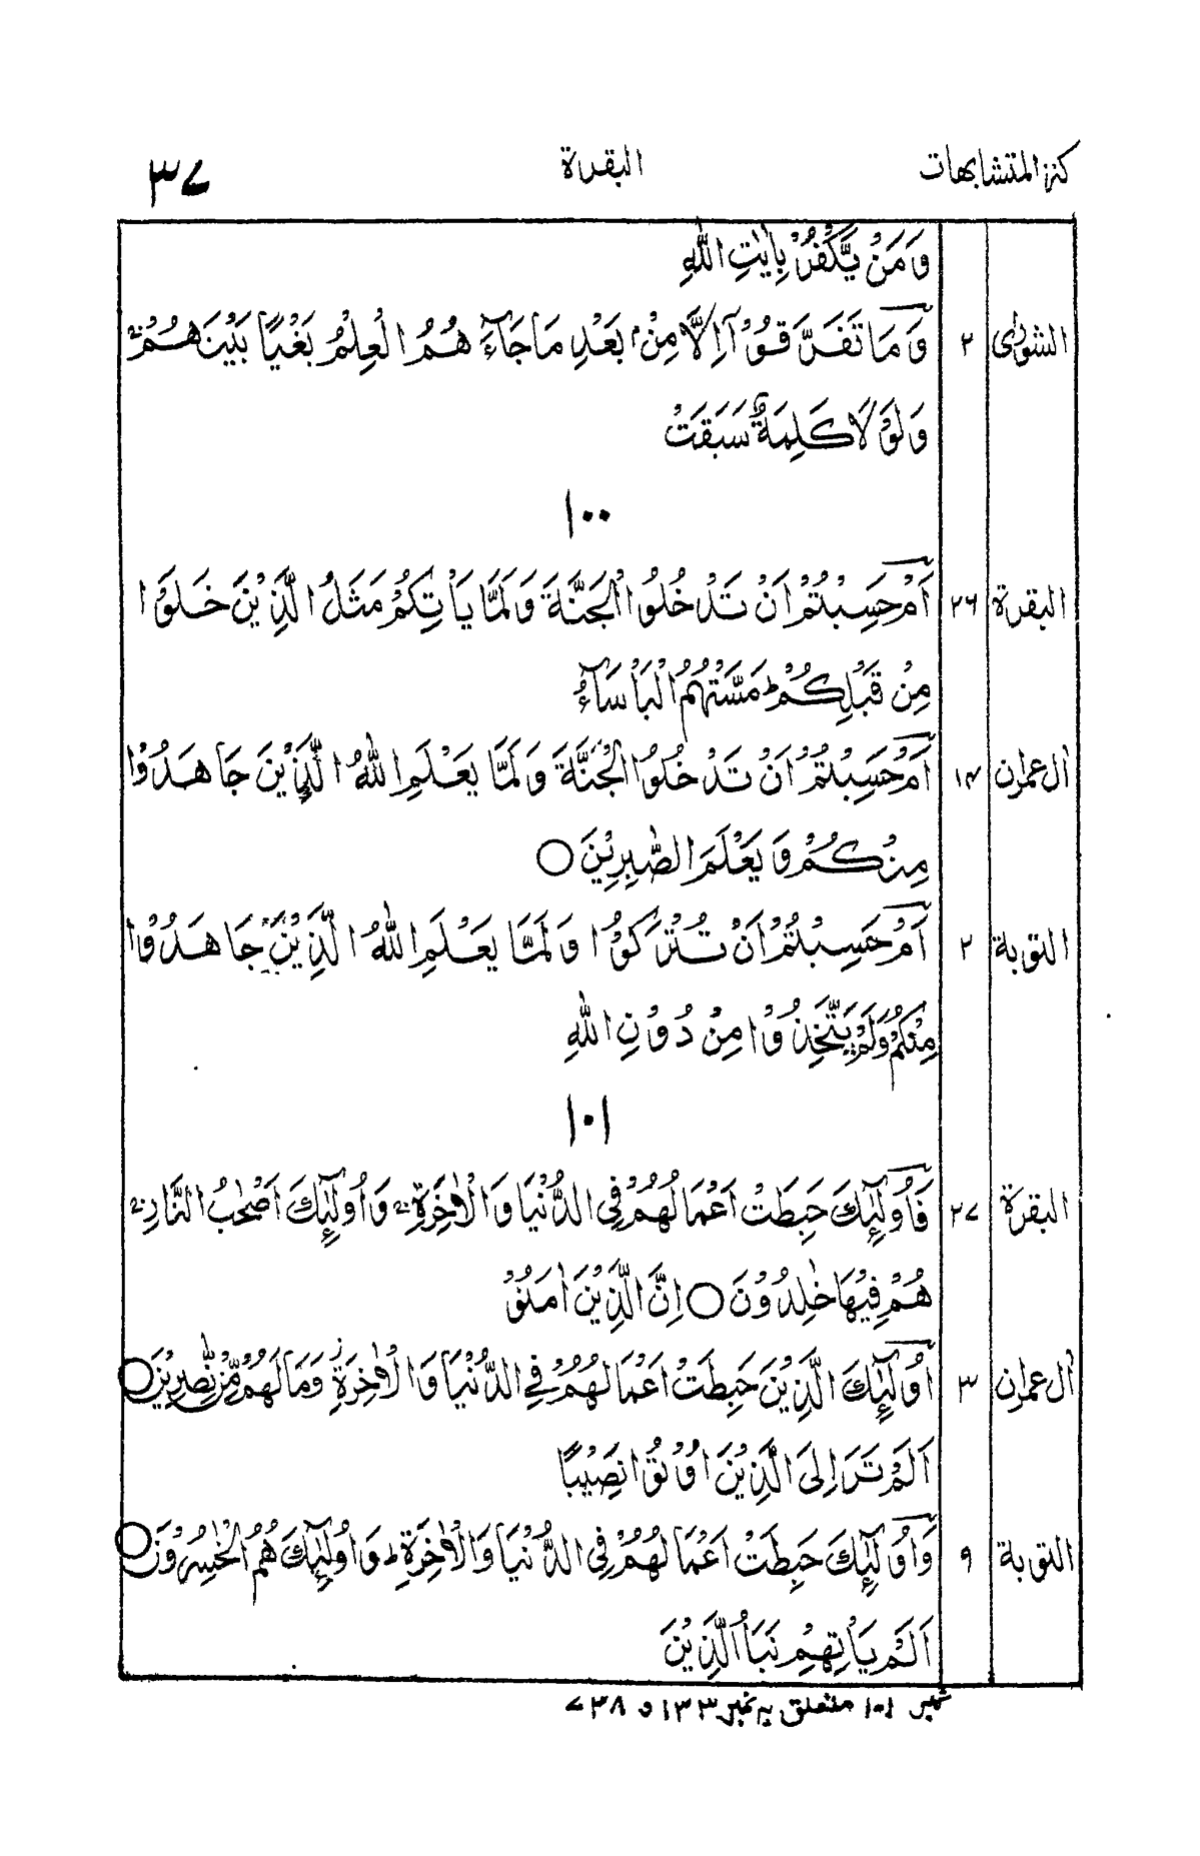 كنز المتشابهات البقرة ٣٧
وَمَنْ يَّكْفُرْ بِاٰيٰتِ اللّٰهِ
الشورٰى ٢ وَمَا تَفَرَّقُوْۤا اِلَّا مِنْۢ بَعْدِ مَا جَآءَ هُمُ الْعِلْمُ بَغْيًا بَيْنَهُمْ ؕ
وَلَوْ لَا كَلِمَةٌ سَبَقَتْ
١٠٠
البقرة ٢٦ اَمْ حَسِبْتُمْ اَنْ تَدْخُلُوا الْجَنَّةَ وَلَمَّا يَاْتِكُمْ مَثَلُ الَّذِيْنَ خَلَوْا
مِنْ قَبْلِكُمْ ؕ مَسَّتْهُمُ الْبَاْسَآءُ
اٰل عمرٰن ١٤ اَمْ حَسِبْتُمْ اَنْ تَدْخُلُوا الْجَنَّةَ وَلَمَّا يَعْلَمِ اللّٰهُ الَّذِيْنَ جَاهَدُوْا
مِنْكُمْ وَيَعْلَمَ الصّٰبِرِيْنَ ○
التوبة ٢ اَمْ حَسِبْتُمْ اَنْ تُتْرَكُوْا وَلَمَّا يَعْلَمِ اللّٰهُ الَّذِيْنَ جَاهَدُوْا
مِنْكُمْ وَلَمْ يَتَّخِذُوْا مِنْ دُوْنِ اللّٰهِ
١٠١
البقرة ٢٧ فَاُولٰٓئِكَ حَبِطَتْ اَعْمَالُهُمْ فِى الدُّنْيَا وَالْاٰخِرَةِ ۚ وَاُولٰٓئِكَ اَصْحٰبُ النَّارِ ۚ
هُمْ فِيْهَا خٰلِدُوْنَ ○ اِنَّ الَّذِيْنَ اٰمَنُوْا
اٰل عمران ٣ اُولٰٓئِكَ الَّذِيْنَ حَبِطَتْ اَعْمَالُهُمْ فِى الدُّنْيَا وَالْاٰخِرَةِ ؗ وَمَا لَهُمْ مِّنْ نّٰصِرِيْنَ ○
اَلَمْ تَرَ اِلَى الَّذِيْنَ اُوْتُوْا نَصِيْبًا
التوبة ٩ وَاُولٰٓئِكَ حَبِطَتْ اَعْمَالُهُمْ فِى الدُّنْيَا وَالْاٰخِرَةِ ؕ وَاُولٰٓئِكَ هُمُ الْخٰسِرُوْنَ ○
اَلَمْ يَاْتِهِمْ نَبَاُ الَّذِيْنَ
نمبر ١٠١ متعلق بہ نمبر ١٣٣ و ٧٣٨